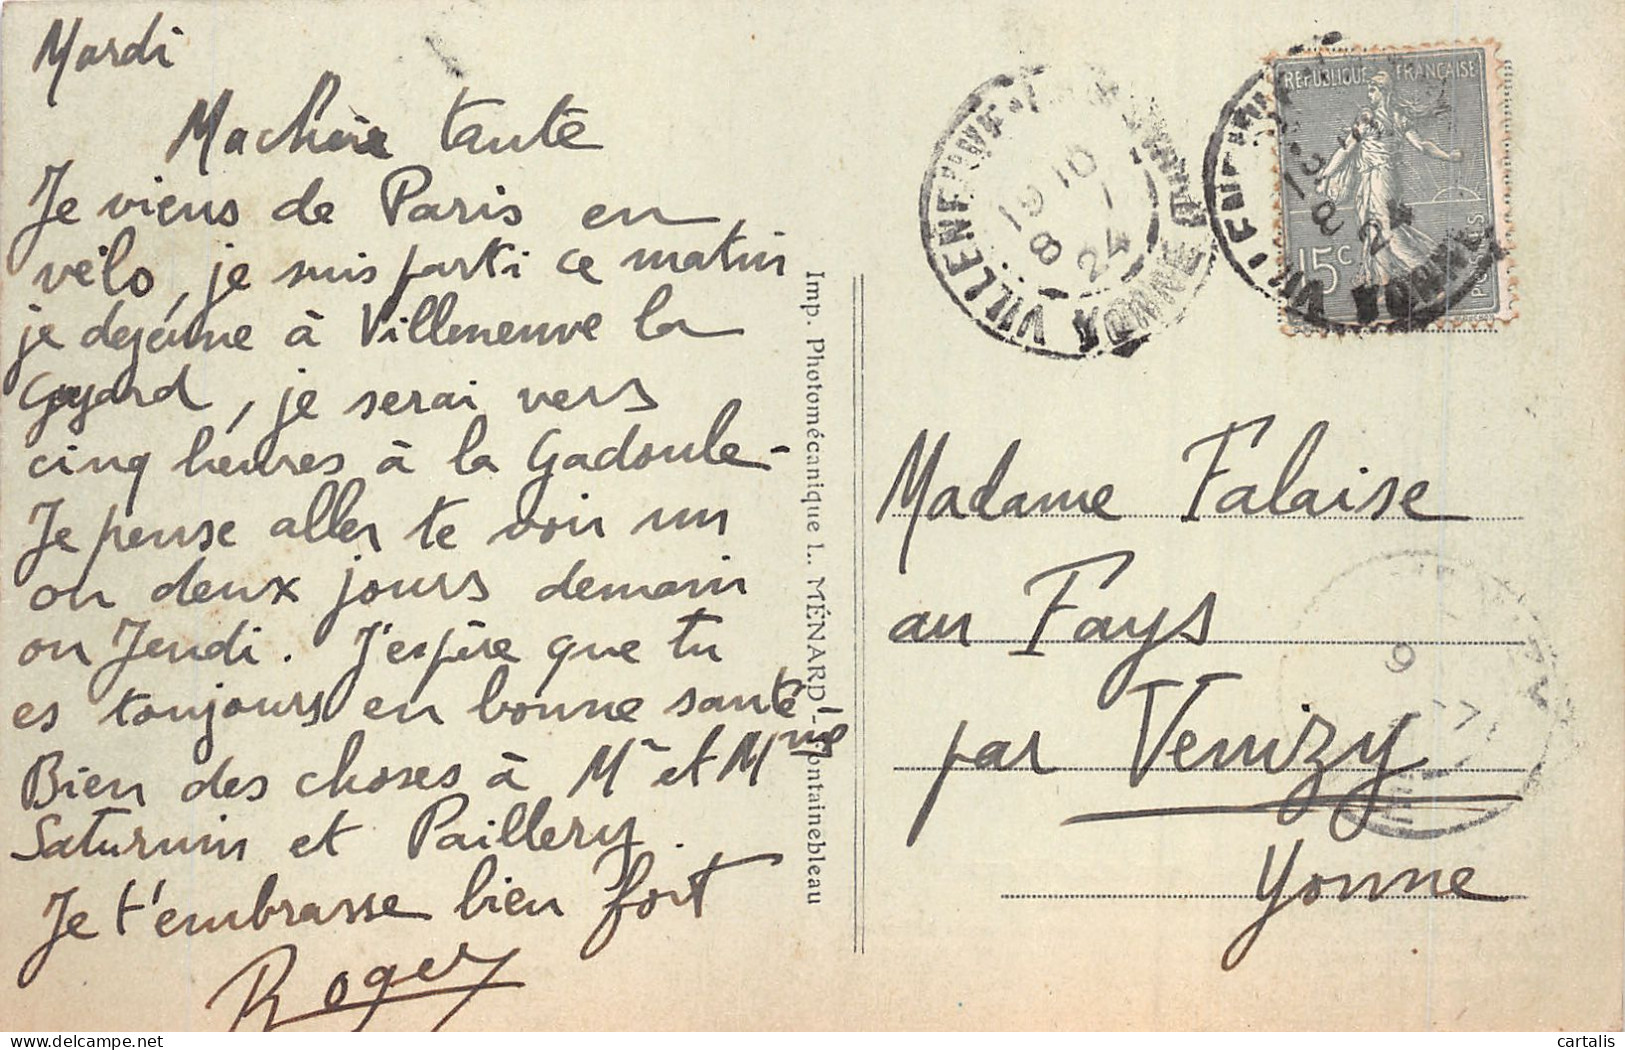 Mardi
Ma chère tante
Je viens de Paris en
vélo, je suis parti ce matin
je dejeune à Villeneuve la
Guyard, je serai vers
cinq heures à la Gadoule -
Je pense aller te voir un
ou deux jours demain
ou Jeudi. J'espère que tu
es toujours en bonne santé -
Bien des choses à Mr et Mme
Saturnin et Paillery.
Je t'embrasse bien fort
Roger
Imp. Photomécanique L. MÉNARD - Fontainebleau
VILLENEUVE-LA
YONNE
19 10
8 -
24
RÉPUBLIQUE FRANÇAISE
15c
POSTES
Madame Falaise
au Fays
par Venizy
Yonne
cartalis